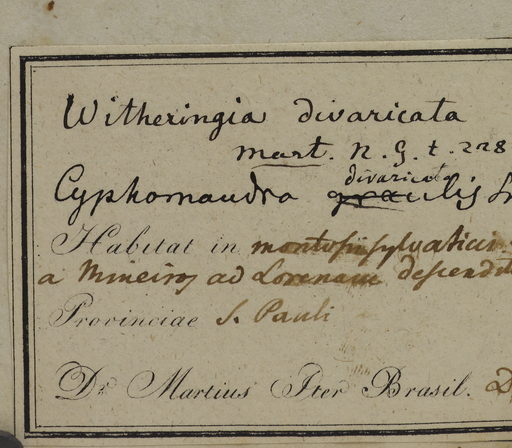 Witheringia divaricata
Mart. N. G. t. 228
divaricata
Cyphomandra gracilis
Habitat in montosis sylvaticis
a Mineiros ad Lorenam descendit
Provinciae S. Pauli
Dr Martius Iter Brasil. D